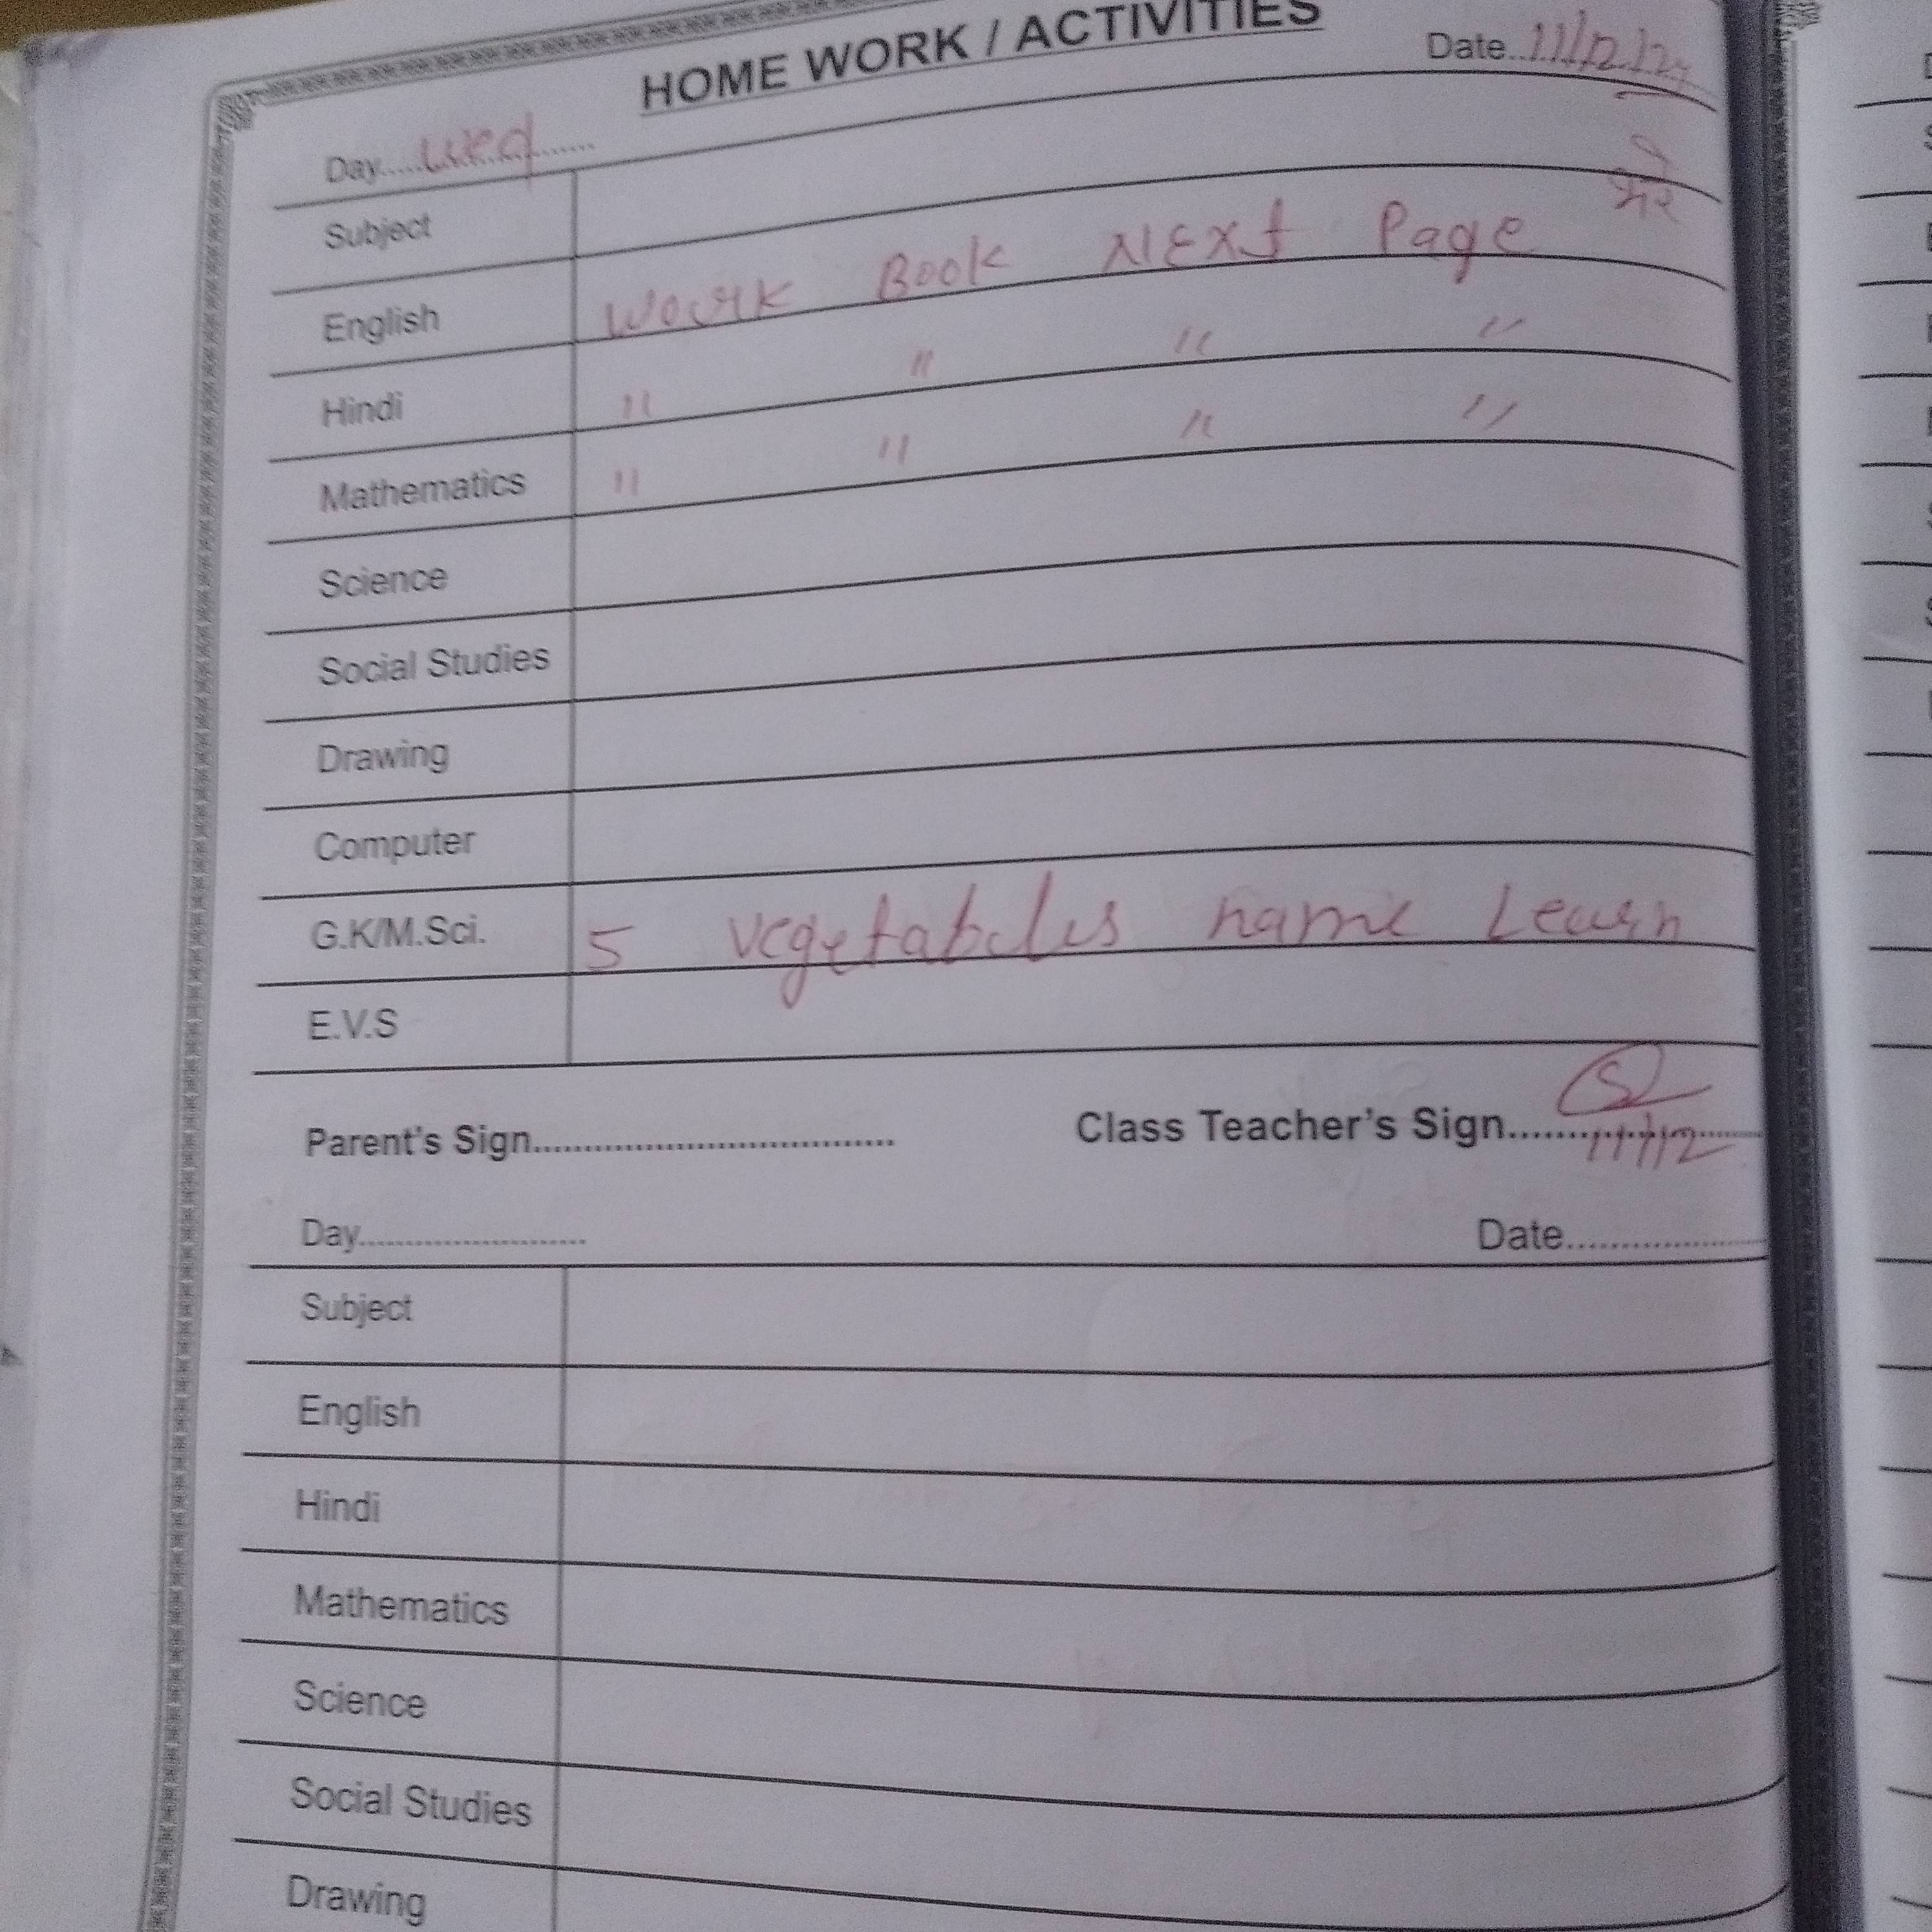 HOME WORK / ACTIVITIES
Day......wed............ Date..11/12/24
Subject
English Work Book Next Page
Hindi " " " "
Mathematics " " " "
Science
Social Studies
Drawing
Computer
G.K/M.Sci. 5 vegetabeles name Learn
E.V.S
Parent's Sign.................................... Class Teacher's Sign........................
11/12
Day......................... Date.....................
Subject
English
Hindi
Mathematics
Science
Social Studies
Drawing